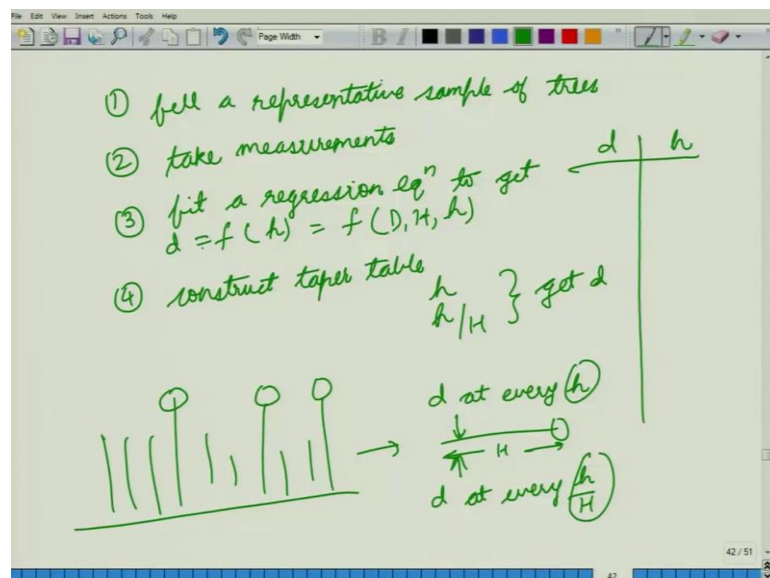 File Edit View Insert Actions Tools Help
Page Width
B I
① fell a representative sample of trees
② take measurements
③ fit a regression eqⁿ to get
d = f(h) = f(D, H, h)
④ construct taper table
h
h/H } get d
d h
d at every h
H
d at every h/H
42 / 51
42